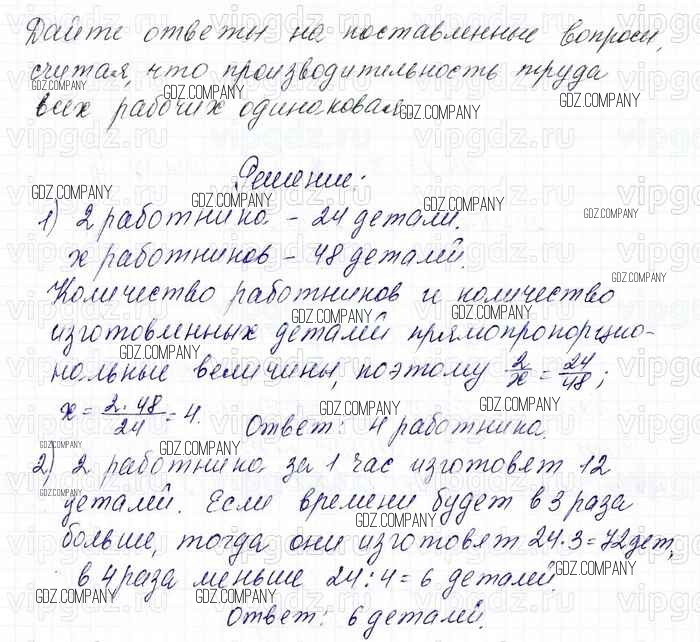 Дайте ответы на поставленные вопросы,
считая, что производительность труда
всех рабочих одинаковая.
Решение:
1) 2 работника – 24 детали.
х работников – 48 деталей.
Количество работников и количество
изготовленных деталей прямопропорцио-
нальные величины, поэтому 2/х = 24/48;
х = 2·48/24 = 4. Ответ: 4 работника.
2) 2 работника за 1 час изготовят 12
деталей. Если времени будет в 3 раза
больше, тогда они изготовят 24·3=72дет,
в 4 раза меньше 24:4=6 деталей.
Ответ: 6 деталей.
GDZ.COMPANY
vipgdz.ru